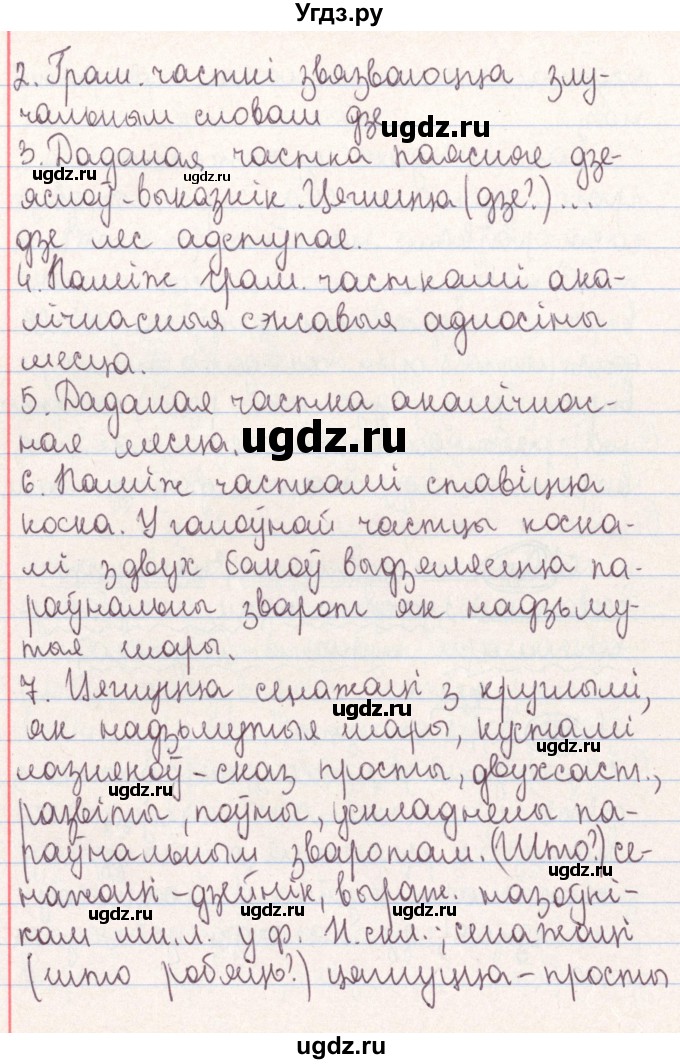 Угдз.ру
2. Грам. часткі звязваюцца злу-
чальным словам дзе
ugdz.ru
3. Даданая частка паясняе дзе-
ugdz.ru
ugdz.ru
яслоў-выказнік. Цягнуцца (дзе?)...
дзе лес адступае.
4. Паміж грам. часткамі ака-
лічнасныя сэнсавыя адносіны
месца.
5. Даданая частка акалічнас-
ная месца.
ugdz.ru
6. Паміж часткамі ставіцца
коска. У галоўнай частцы коска-
мі з двух бакоў выдзяляецца па-
раўнальны зварот як надзьму-
тыя шары.
7. Цягнуцца сенажаці з круглымі,
ugdz.ru
як надзьмутыя шары, кустамі
ugdz.ru
лазнякоў - сказ просты, двухсаст.,
ugdz.ru
развіты, поўны, ускладнены па-
раўнальным зваротам. (Што?) се-
ugdz.ru
нажаці - дзейнік, выраж. назоўні-
ugdz.ru
ugdz.ru
кам мн.л. у ф. Н.скл.; сенажаці
(што робяць?) цягнуцца - просты
ugdz.ru